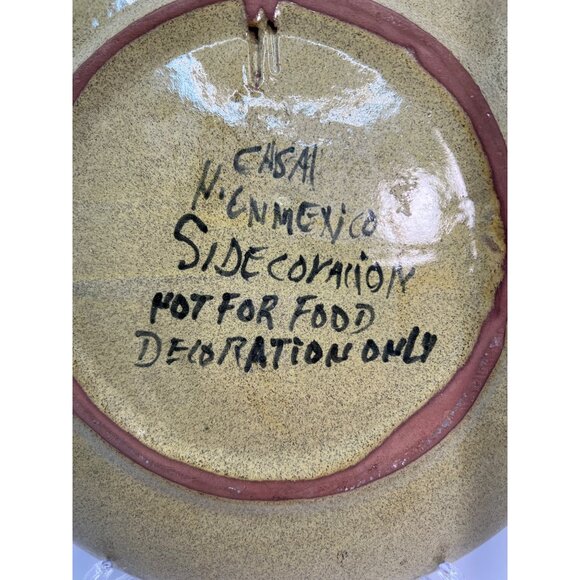 CASAI
H. EN MEXICO
SIDECORACION
NOT FOR FOOD
DECORATION ONLY